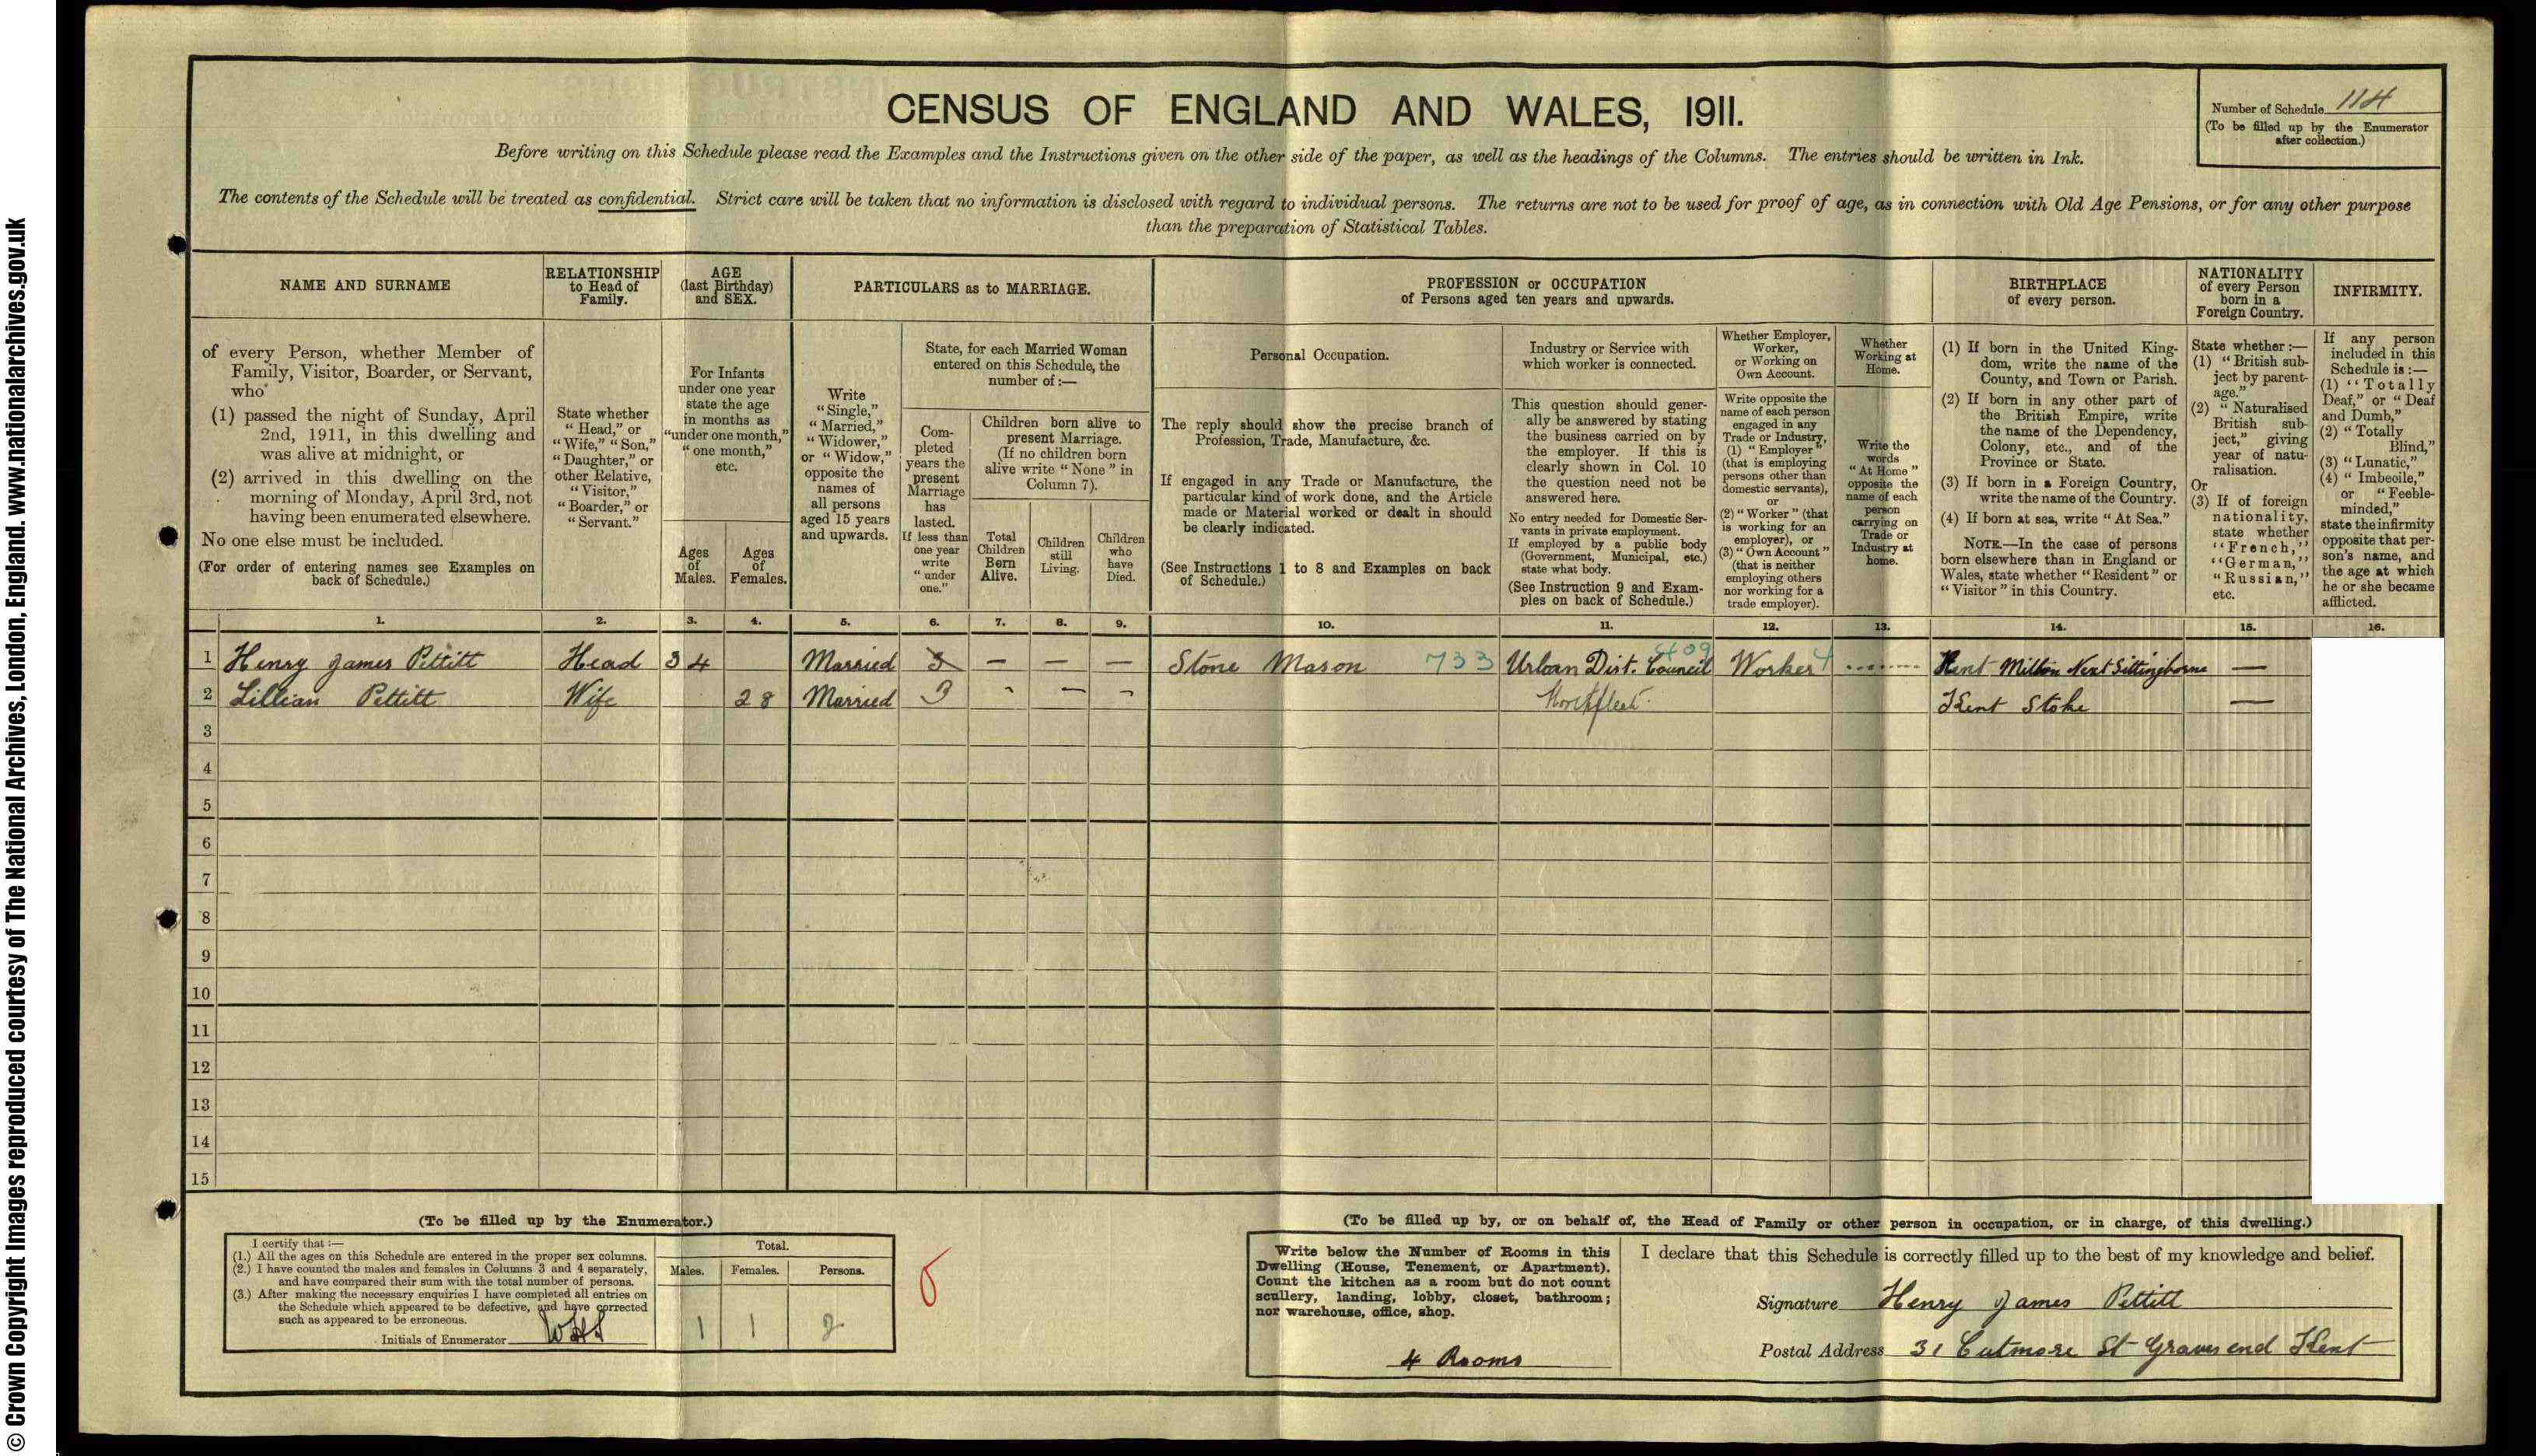 © Crown Copyright Images reproduced courtesy of The National Archives, London, England. www.nationalarchives.gov.uk
CENSUS OF ENGLAND AND WALES, 1911.
Number of Schedule 114
(To be filled up by the Enumerator
after collection.)
Before writing on this Schedule please read the Examples and the Instructions given on the other side of the paper, as well as the headings of the Columns. The entries should be written in Ink.
The contents of the Schedule will be treated as confidential. Strict care will be taken that no information is disclosed with regard to individual persons. The returns are not to be used for proof of age, as in connection with Old Age Pensions, or for any other purpose
than the preparation of Statistical Tables.
NAME AND SURNAME
of every Person, whether Member of
Family, Visitor, Boarder, or Servant,
who
(1) passed the night of Sunday, April
2nd, 1911, in this dwelling and
was alive at midnight, or
(2) arrived in this dwelling on the
morning of Monday, April 3rd, not
having been enumerated elsewhere.
No one else must be included.
(For order of entering names see Examples on
back of Schedule.)
RELATIONSHIP
to Head of
Family.
State whether
“Head,” or
“Wife,” “Son,”
“Daughter,” or
other Relative,
“Visitor,”
“Boarder,” or
“Servant.”
AGE
(last Birthday)
and SEX.
For Infants
under one year
state the age
in months as
“under one month,”
“one month,”
etc.
Ages
of
Males.
Ages
of
Females.
PARTICULARS as to MARRIAGE.
Write
“Single,”
“Married,”
“Widower,”
or “Widow,”
opposite the
names of
all persons
aged 15 years
and upwards.
State, for each Married Woman
entered on this Schedule, the
number of:—
Com-
pleted
years the
present
Marriage
has
lasted.
If less than
one year
write
“under
one.”
Children born alive to
present Marriage.
(If no children born
alive write “None” in
Column 7).
Total
Children
Born
Alive.
Children
still
Living.
Children
who
have
Died.
PROFESSION or OCCUPATION
of Persons aged ten years and upwards.
Personal Occupation.
The reply should show the precise branch of
Profession, Trade, Manufacture, &c.
If engaged in any Trade or Manufacture, the
particular kind of work done, and the Article
made or Material worked or dealt in should
be clearly indicated.
(See Instructions 1 to 8 and Examples on back
of Schedule.)
Industry or Service with
which worker is connected.
This question should gener-
ally be answered by stating
the business carried on by
the employer. If this is
clearly shown in Col. 10
the question need not be
answered here.
No entry needed for Domestic Ser-
vants in private employment.
If employed by a public body
(Government, Municipal, etc.)
state what body.
(See Instruction 9 and Exam-
ples on back of Schedule.)
Whether Employer,
Worker,
or Working on
Own Account.
Write opposite the
name of each person
engaged in any
Trade or Industry,
(1) “Employer”
(that is employing
persons other than
domestic servants),
or
(2) “Worker” (that
is working for an
employer), or
(3) “Own Account”
(that is neither
employing others
nor working for a
trade employer).
Whether
Working at
Home.
Write the
words
“At Home”
opposite the
name of each
person
carrying on
Trade or
Industry at
home.
BIRTHPLACE
of every person.
(1) If born in the United King-
dom, write the name of the
County, and Town or Parish.
(2) If born in any other part of
the British Empire, write
the name of the Dependency,
Colony, etc., and of the
Province or State.
(3) If born in a Foreign Country,
write the name of the Country.
(4) If born at sea, write “At Sea.”
NOTE.—In the case of persons
born elsewhere than in England or
Wales, state whether “Resident” or
“Visitor” in this Country.
NATIONALITY
of every Person
born in a
Foreign Country.
State whether:—
(1) “British sub-
ject by parent-
age.”
(2) “Naturalised
British sub-
ject,” giving
year of natu-
ralisation.
Or
(3) If of foreign
nationality,
state whether
“French,”
“German,”
“Russian,”
etc.
INFIRMITY.
If any person
included in this
Schedule is:—
(1) “Totally
Deaf,” or “Deaf
and Dumb,”
(2) “Totally
Blind,”
(3) “Lunatic,”
(4) “Imbecile,”
or “Feeble-
minded,”
state the infirmity
opposite that per-
son's name, and
the age at which
he or she became
afflicted.
1. 2. 3. 4. 5. 6. 7. 8. 9. 10. 11. 12. 13. 14. 15. 16.
1 Henry James Pettitt Head 34 Married 3 — — — Stone Mason 733 Urban Dist. Council 409 Worker Kent Milton Next Sittingborne —
2 Lillian Pettitt Wife 28 Married 3 - — - Northfleet. Kent Stoke —
3
4
5
6
7
8
9
10
11
12
13
14
15
(To be filled up by the Enumerator.)
I certify that:—
(1.) All the ages on this Schedule are entered in the proper sex columns.
(2.) I have counted the males and females in Columns 3 and 4 separately,
and have compared their sum with the total number of persons.
(3.) After making the necessary enquiries I have completed all entries on
the Schedule which appeared to be defective, and have corrected
such as appeared to be erroneous.
Initials of Enumerator
Total.
Males. Females. Persons.
1 1 2
(To be filled up by, or on behalf of, the Head of Family or other person in occupation, or in charge, of this dwelling.)
Write below the Number of Rooms in this
Dwelling (House, Tenement, or Apartment).
Count the kitchen as a room but do not count
scullery, landing, lobby, closet, bathroom;
nor warehouse, office, shop.
4 Rooms
I declare that this Schedule is correctly filled up to the best of my knowledge and belief.
Signature Henry James Pettitt
Postal Address 31 Cutmore St Gravesend Kent